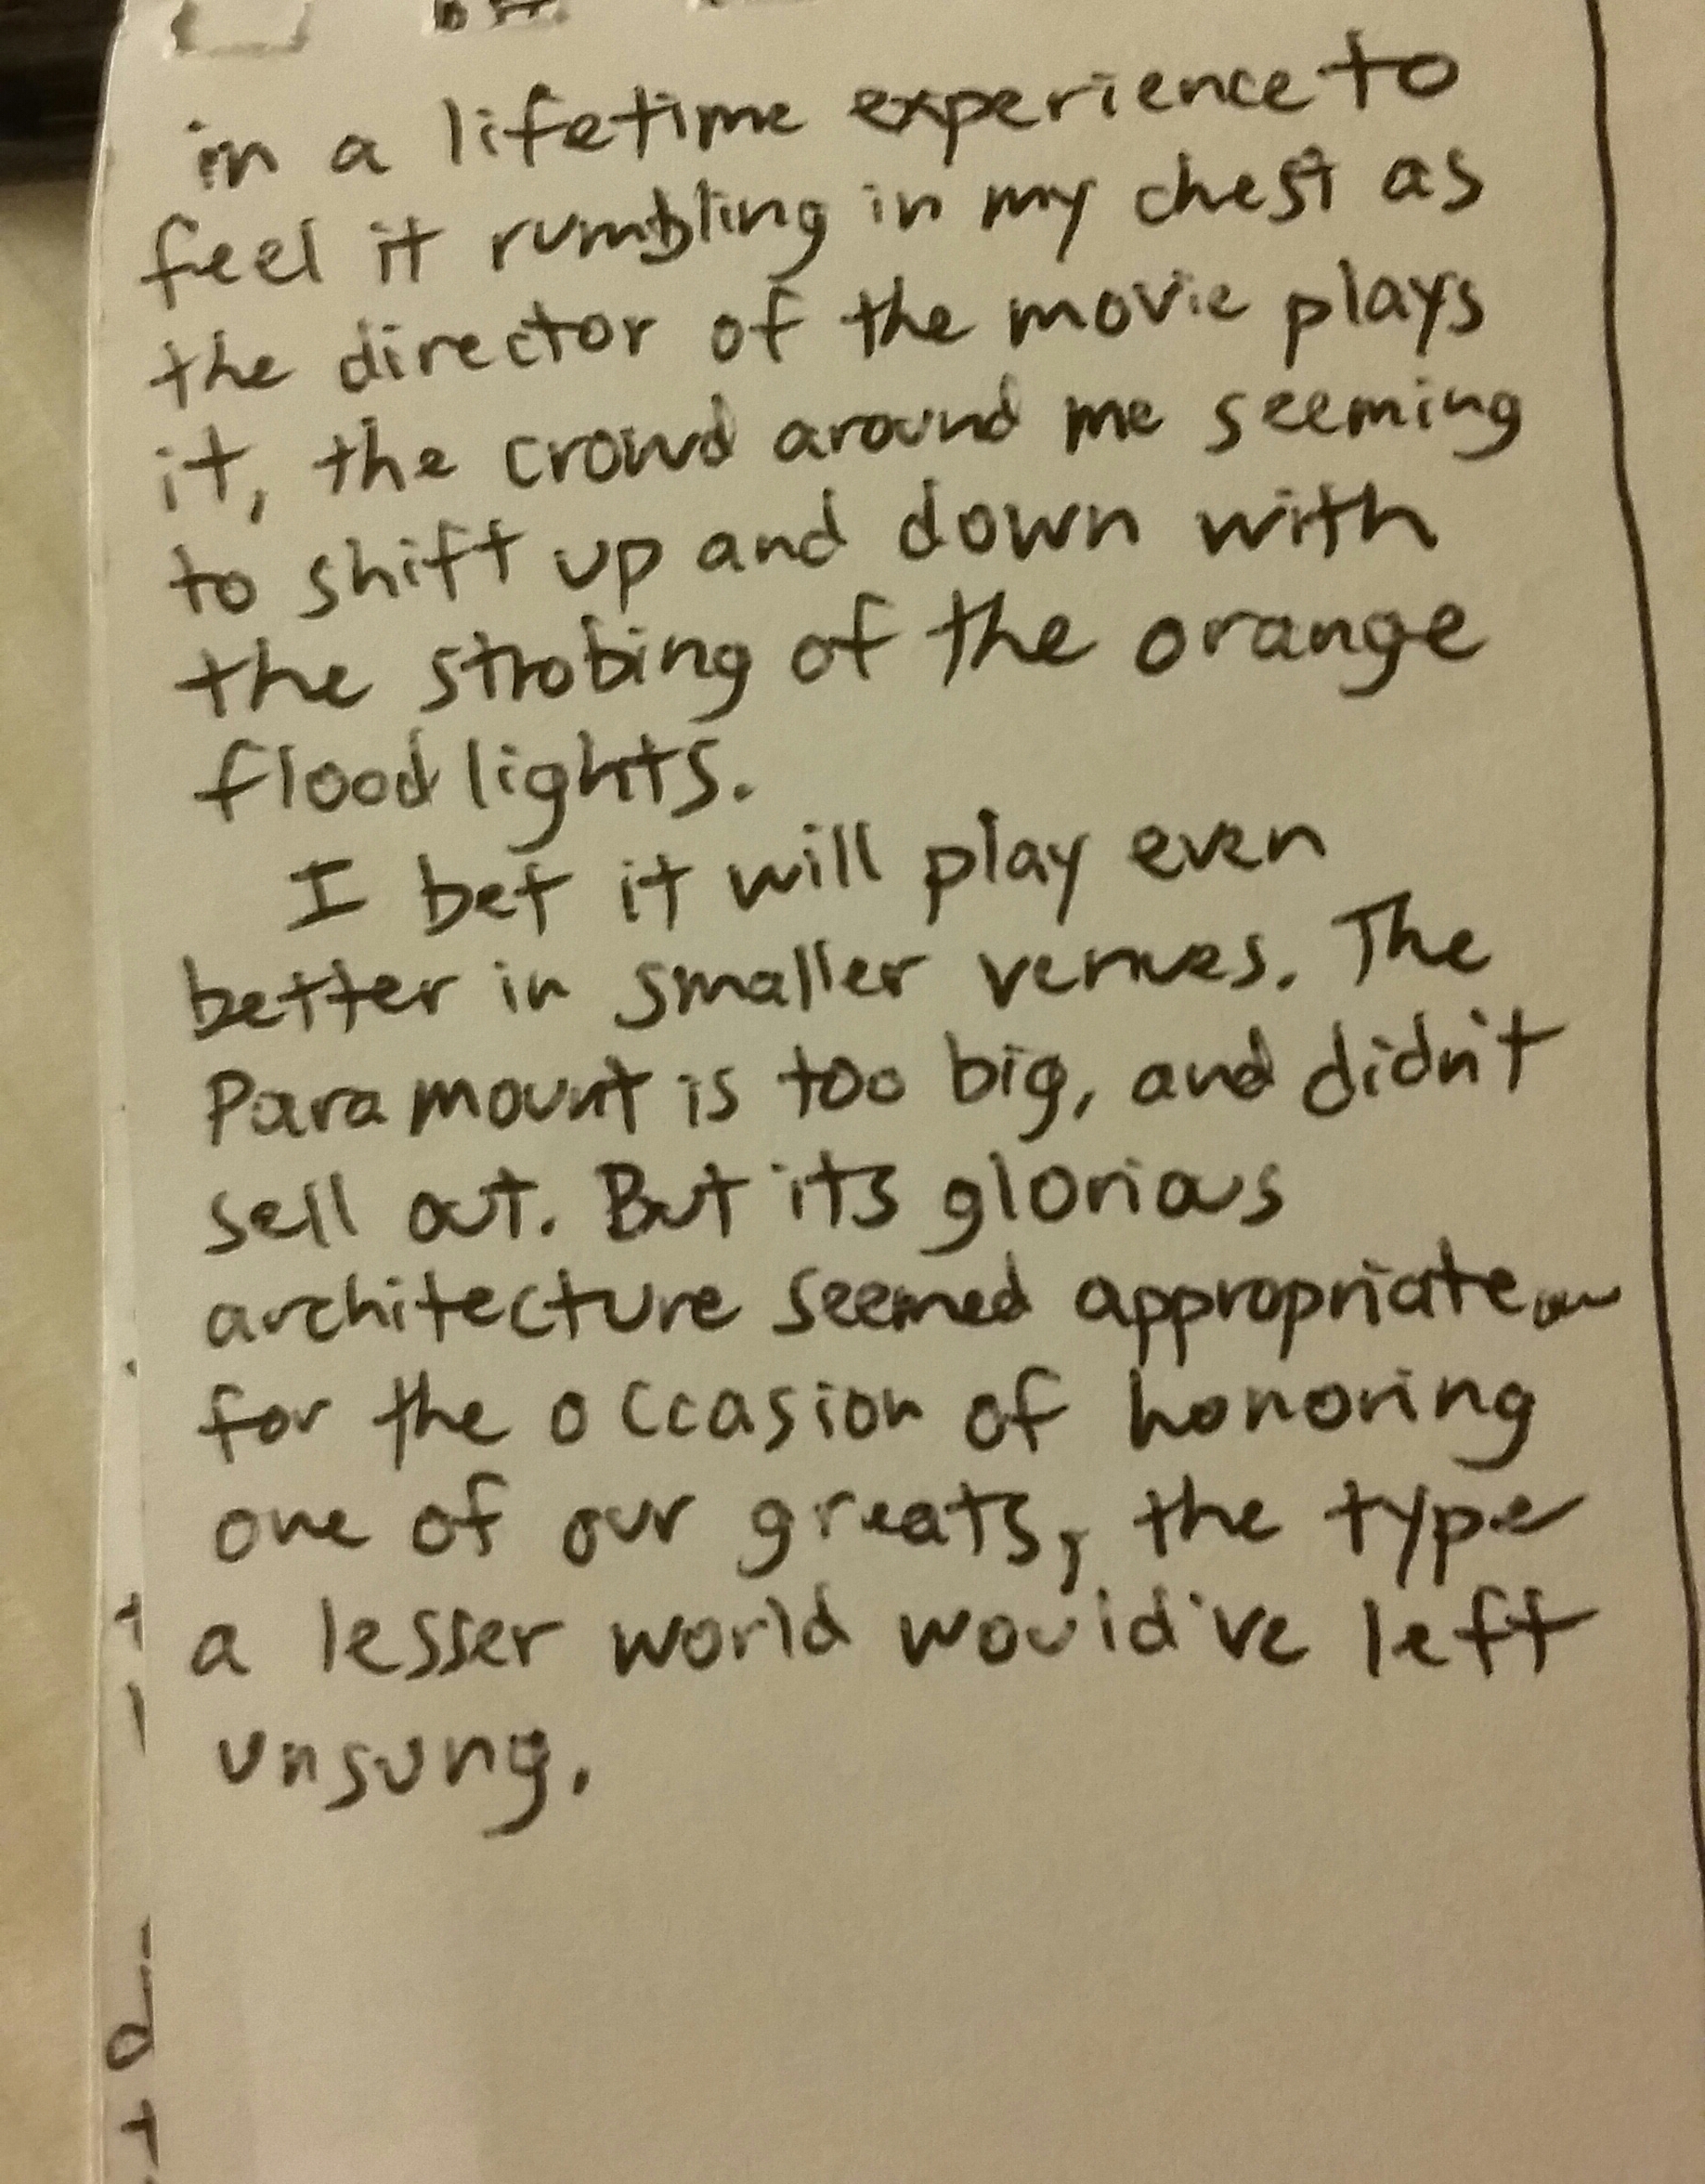 in a lifetime experience to
feel it rumbling in my chest as
the director of the movie plays
it, the crowd around me seeming
to shift up and down with
the strobing of the orange
floodlights.
I bet it will play even
better in smaller venues. The
Paramount is too big, and didn't
sell out. But its glorious
architecture seemed appropriate
for the occasion of honoring
one of our greats, the type
a lesser world would've left
unsung.